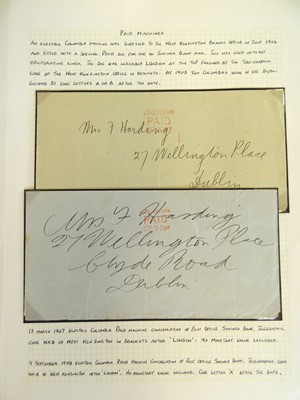 PAID MACHINES
AN ELECTRIC COLUMBIA MACHINE WAS SUPPLIED TO THE WEST KENSINGTON BRANCH OFFICE IN JULY 1906
AND FITTED WITH A SPECIAL PAID DIE FOR USE ON SAVINGS BANK MAIL. THIS WAS USED WITHOUT
OBLITERATING LINES. THE DIE WAS INSCRIBED LONDON AT THE TOP FOLLOWED BY THE TELEGRAPHIC
CODE OF THE WEST KENSINGTON OFFICE IN BRACKETS. BY 1908 TWO COLUMBIAS WERE IN USE DISTIN-
GUISHED BY CODE LETTERS A OR B AFTER THE DATE.
PAID
Mrs F Harding
27 Wellington Place
Dublin
PAID
Mrs F Harding
27 Wellington Place
Clyde Road
Dublin
13 MARCH 1907 ELECTRIC COLUMBIA PAID MACHINE CANCELLATION OF POST OFFICE SAVINGS BANK, TELEGRAPHIC
CODE OF WEST KENSINGTON IN BRACKETS AFTER 'LONDON'. NO MONETARY VALUE INCLUDED.
SEPTEMBER 1908 ELECTRIC COLUMBIA PAID MACHINE CANCELLATION OF POST OFFICE SAVINGS BANK, TELEGRAPHIC
CODE OF WEST KENSINGTON AFTER 'LONDON'. NO MONETARY VALUE INCLUDED. CODE LETTER 'A' AFTER THE DATE.